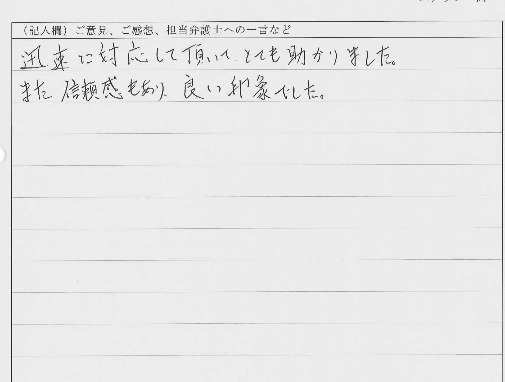 （記入欄）ご意見、ご感想、担当弁護士への一言など
迅速に対応して頂いて、とても助かりました。
また信頼感もあり、良い印象でした。